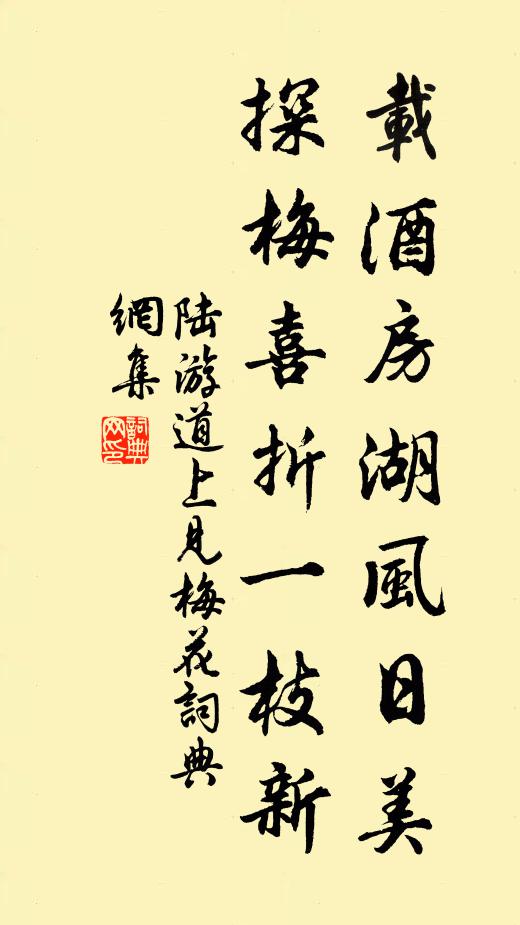 載酒房湖風日美
探梅喜折一枝新
陆游道上見梅花詞典
網集
詞典网印